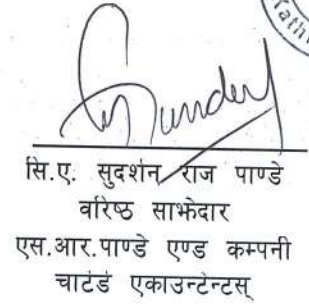 सि.ए. सुदर्शन राज पाण्डे
वरिष्ठ साझेदार
एस.आर.पाण्डे एण्ड कम्पनी
चार्टर्ड एकाउन्टेन्टस्